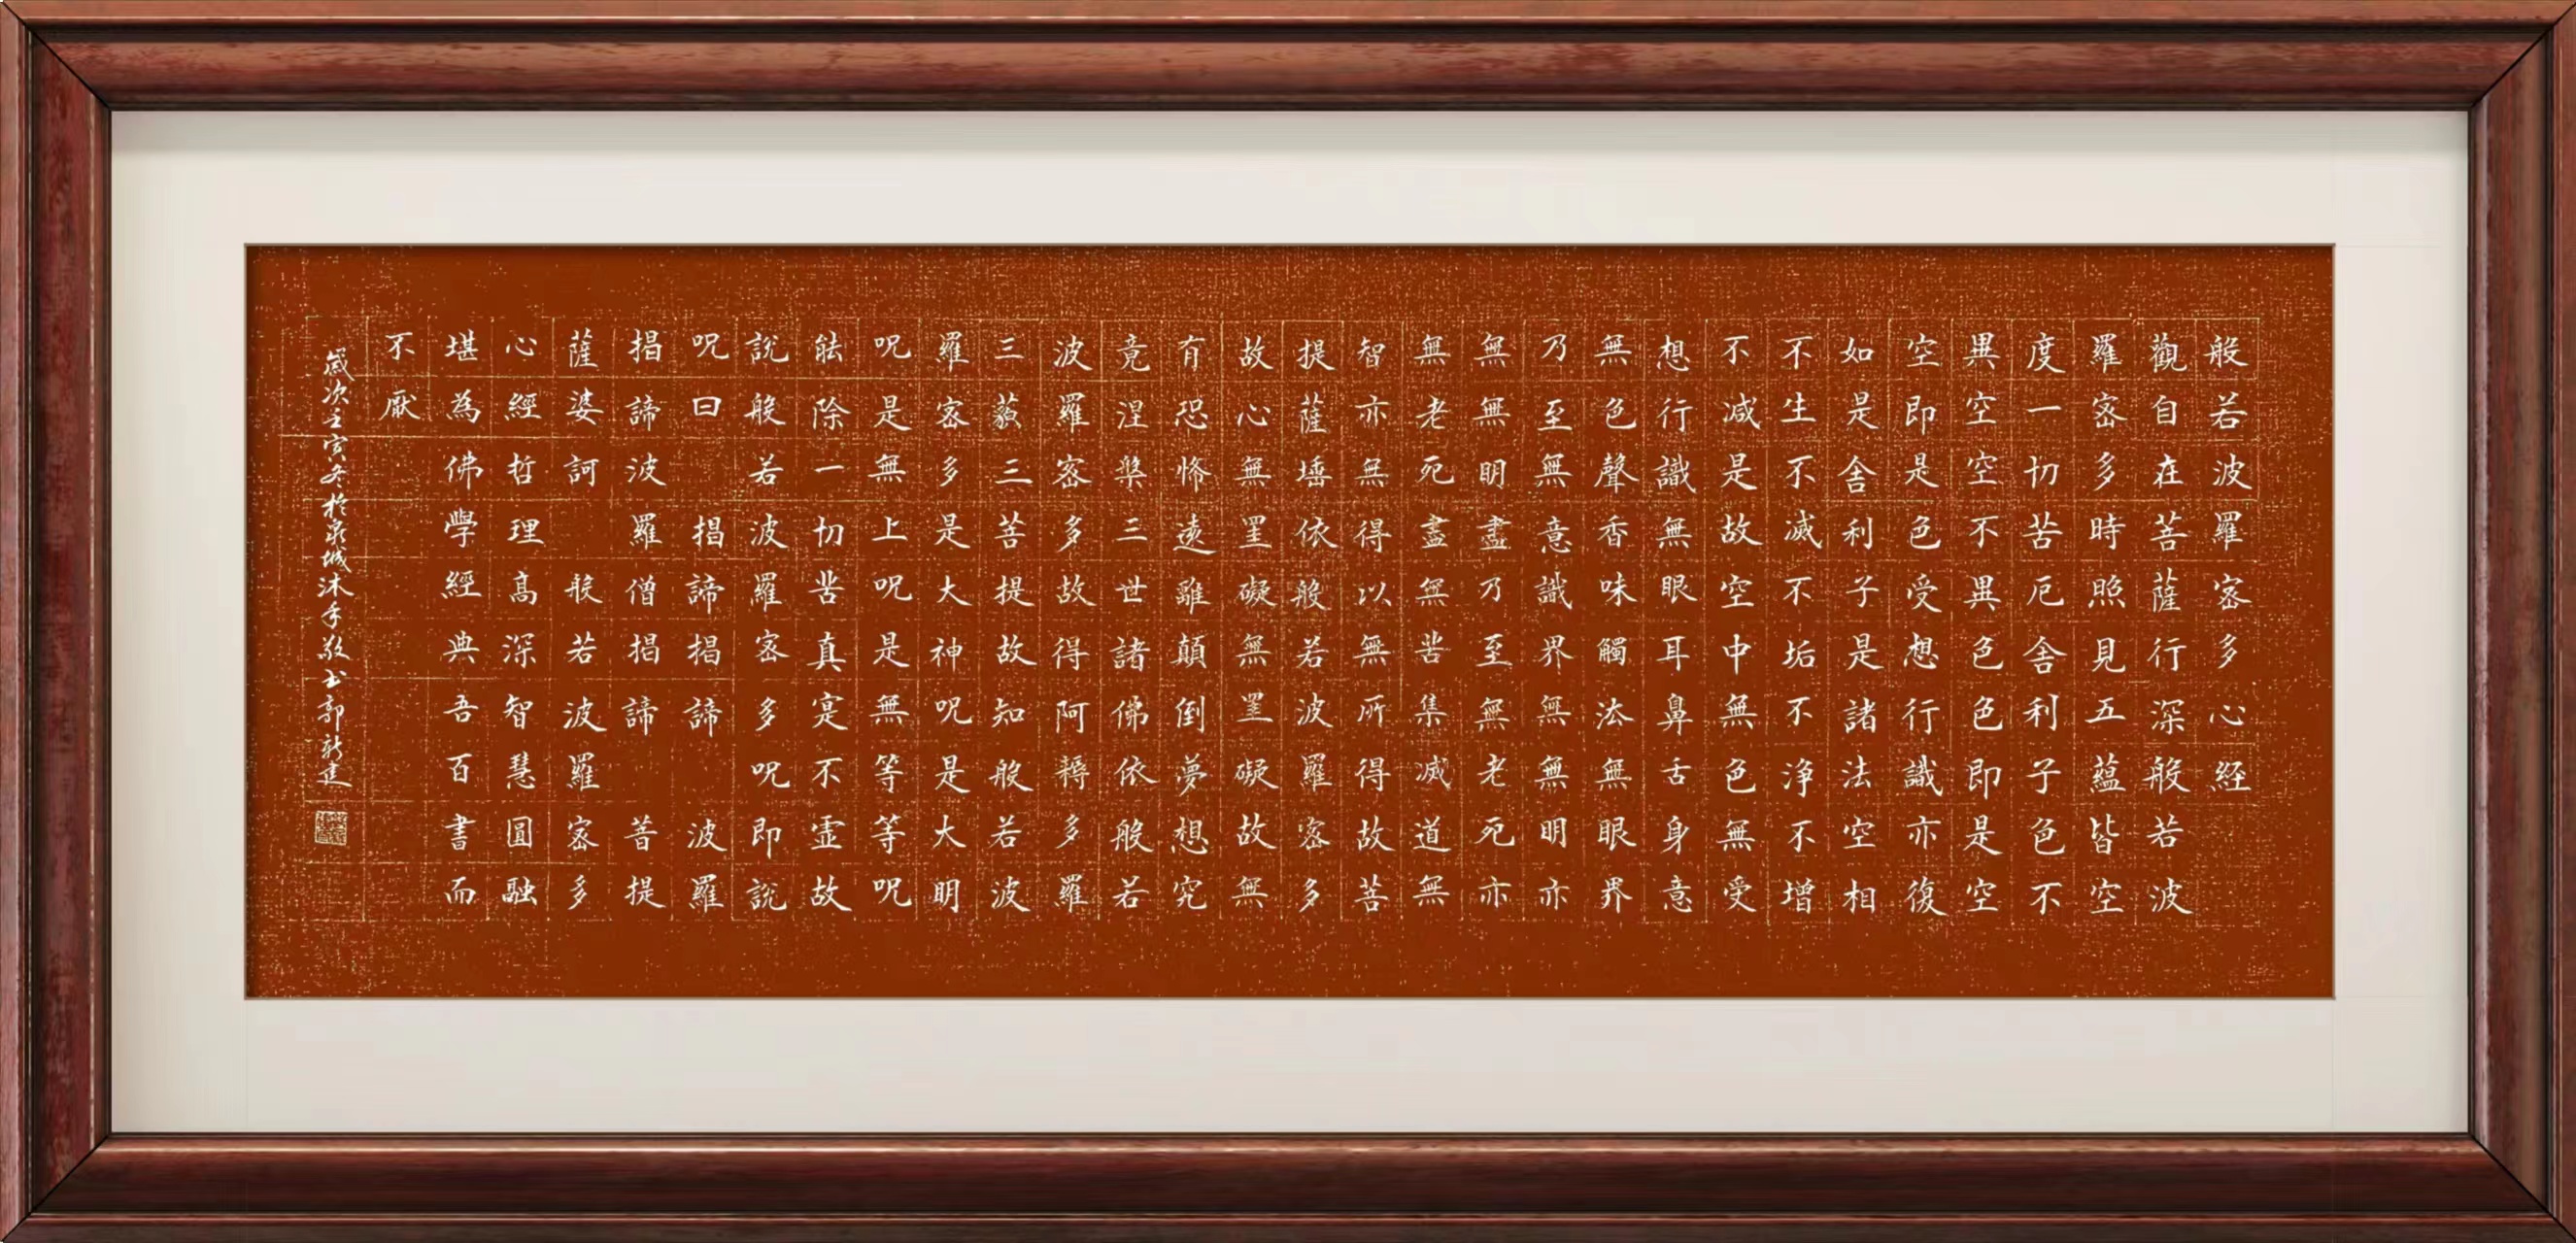 般若波羅密多心経
觀自在菩薩行深般若波
羅密多時照見五蘊皆空
度一切苦厄舎利子色不
異空空不異色色即是空
空即是色受想行識亦復
如是舎利子是諸法空相
不生不滅不垢不净不增
不减是故空中無色無受
想行識無眼耳鼻舌身意
無色聲香味觸法無眼界
乃至無意識界無無明亦
無無明盡乃至無老死亦
無老死盡無苦集滅道無
智亦無得以無所得故菩
提薩埵依般若波羅密多
故心無罣礙無罣礙故無
有恐怖遠離顛倒夢想究
竟涅槃三世諸佛依般若
波羅密多故得阿耨多羅
三藐三菩提故知般若波
羅密多是大神呪是大明
呪是無上呪是無等等呪
能除一切苦真寔不虚故
説般若波羅密多呪即説
呪曰 揭諦揭諦 波羅
揭諦波羅僧揭諦 菩提
薩婆訶 般若波羅密多
心經哲理高深智慧圓融
堪為佛學經典吾百書而
不厭
歲次壬寅冬於泉城沐手敬书郭新建